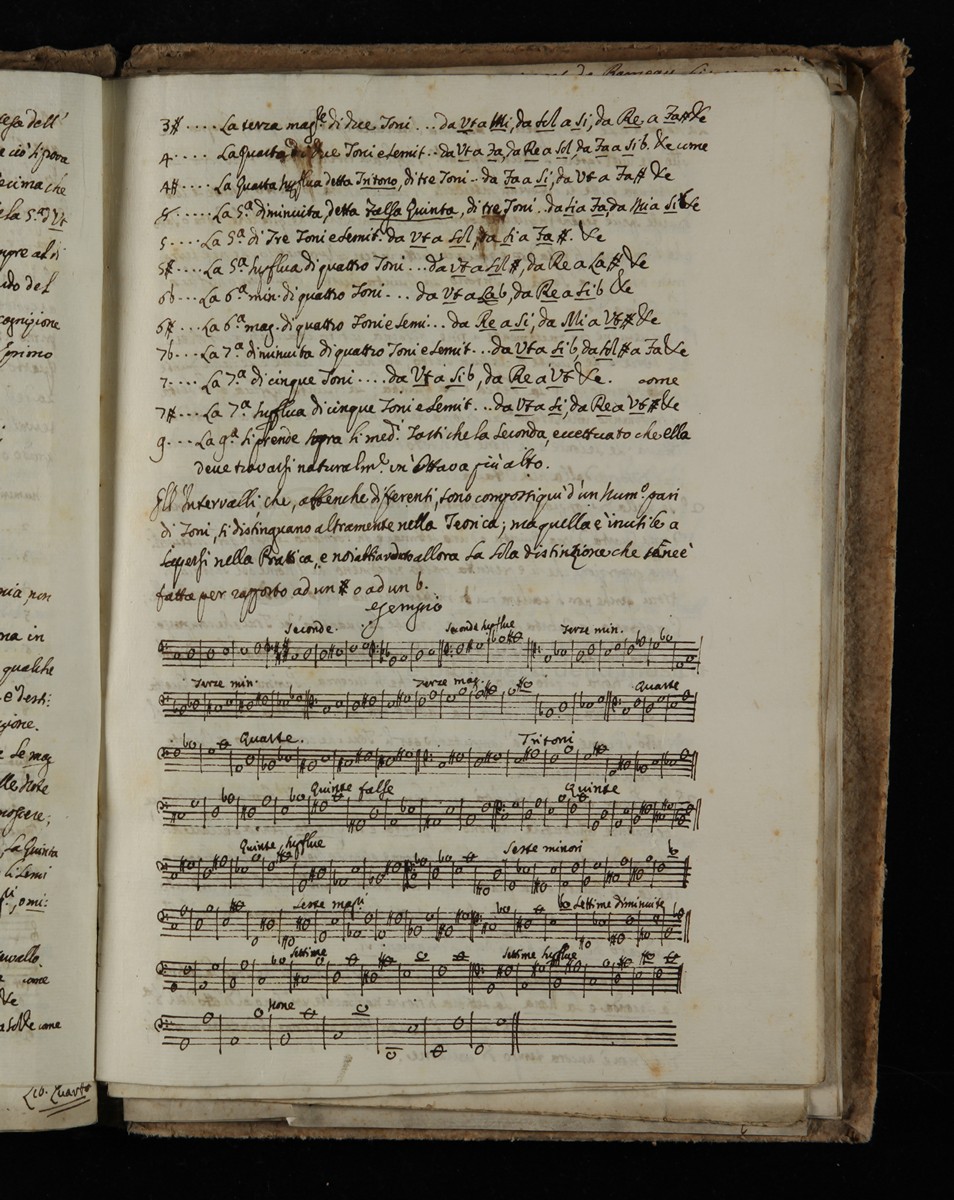 3# .... La terza mag.re di due Toni ... da Ut a Mi, da Sol a Si, da Re a Fa# &c
4. ... La Quarta di due Toni e semit .. da Ut a Fa, da Re a Sol, da Fa a Si b. &c come
4# .... La Quarta sup̃flua detta Tritono, di tre Toni .. da Fa a Si, da Ut a Fa # &c
8. .... La 5.a diminuita, detta Falsa Quinta, di tre Toni . da Si a Fa, da Mi a Si b &c
5 .... La 5.a di Tre Toni e semit. da Ut a Sol, da Si a Fa #. &c
5# .... La 5.a sup̃flua di quattro Toni ... da Ut a Sol #, da Re a La # &c
6b .... La 6.a min. di quattro Toni ... da Ut a La b, da Re a Si b &c
6# .... La 6.a mag. di quattro Toni e Semi... da Re a Si, da Mi a Ut # &c
7b ... La 7.a diminuita di quattro Toni e semit ... da Ut a Si b, da Sol # a Fa &c
7. .... La 7.a di cinque Toni .... da Ut a Si b, da Re a Ut &c. come
7# .... La 7.a sup̃flua di cinque Toni e semit ... da Ut a Si, da Re a Ut # &c
9. ... La 9.a si prende sopra li med.i Tasti che la Seconda, eccettuato che ella
deve trovarsi naturalm.e un' Ottava più alto.
Gl' Intervalli che, abbenche differenti, sono composti qui d'un Num.o pari
di Toni, si distinguano altramente nella Teorica; ma quella è inutile a
sapersi nella Prattica, e noi allora la sola distinzione che se n'è
fatta per rapporto ad un # o ad un b.
esempio
Seconde. Seconde sup̃flue Terze min.
Terze min. Terze mag. Quarte
Quarte. Tritoni
Quinte false Quinte
Quinte sup̃flue Seste minori
Seste mag.i Settime diminuite
Settime Settime sup̃flue
None
Lib. Quarto